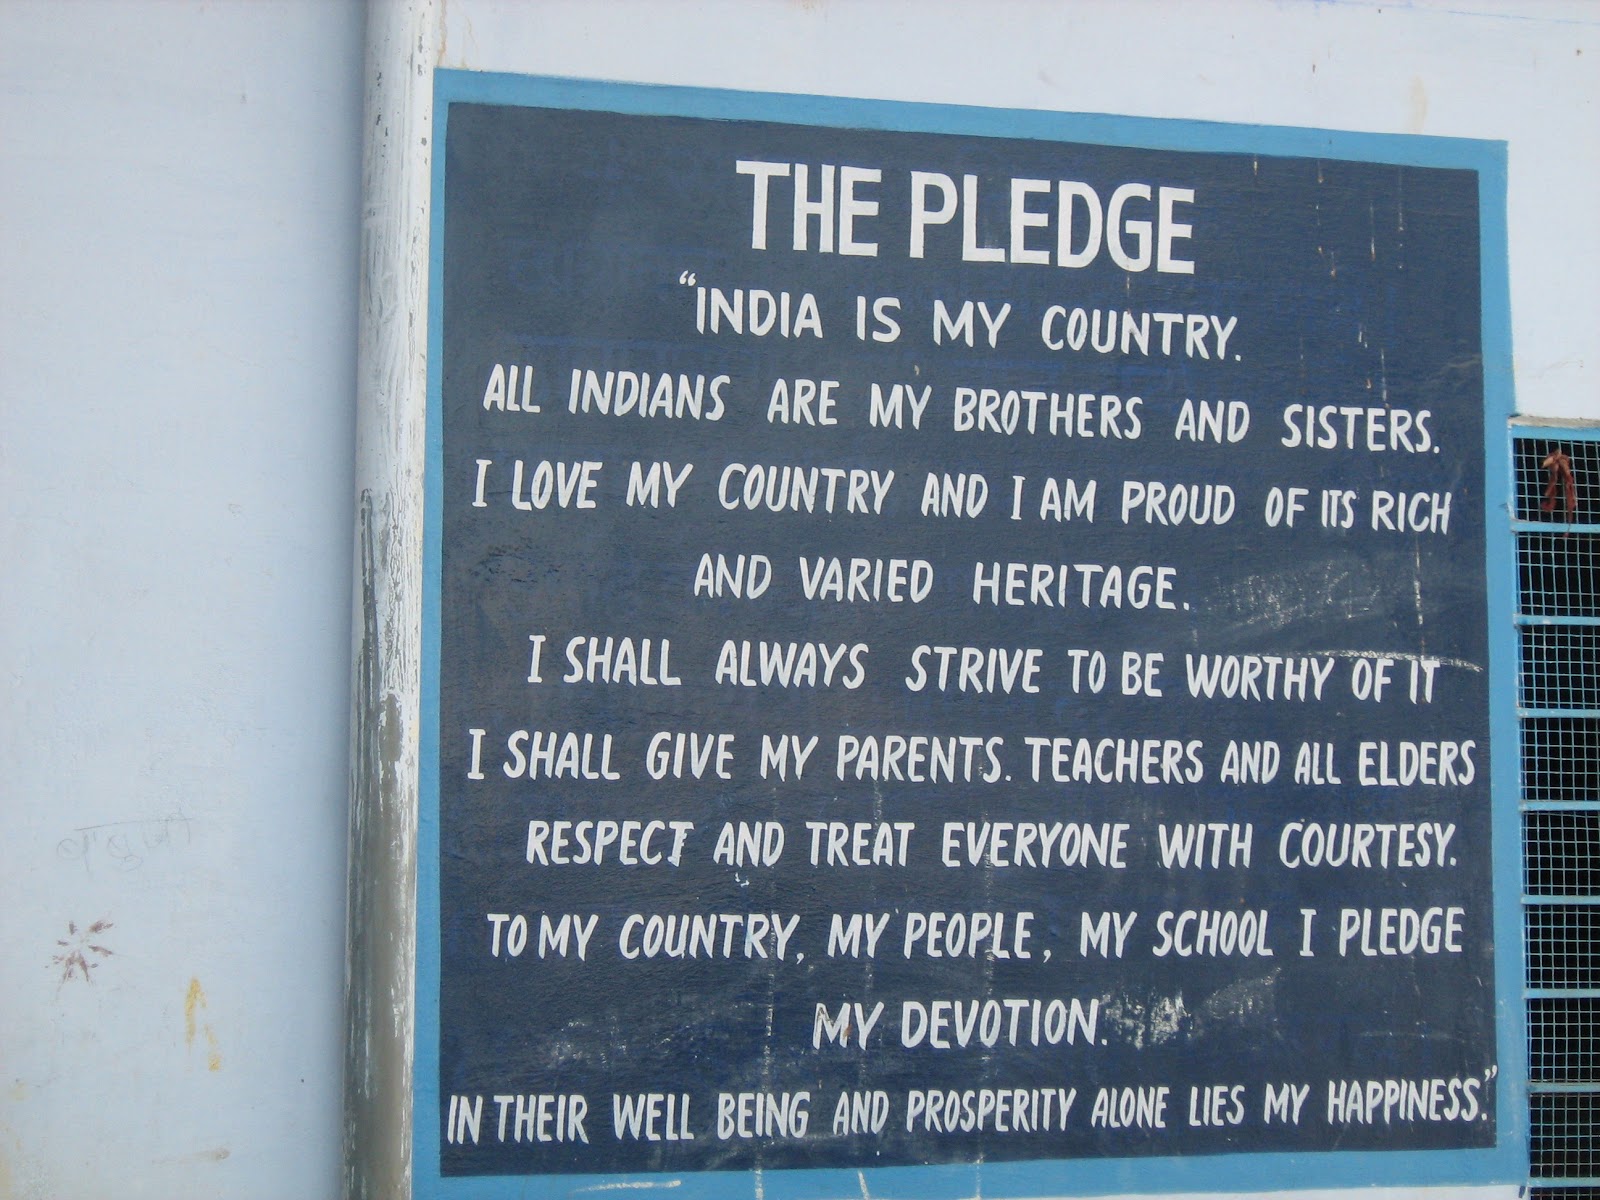 THE PLEDGE
“INDIA IS MY COUNTRY.
ALL INDIANS ARE MY BROTHERS AND SISTERS.
I LOVE MY COUNTRY AND I AM PROUD OF ITS RICH
AND VARIED HERITAGE.
I SHALL ALWAYS STRIVE TO BE WORTHY OF IT
I SHALL GIVE MY PARENTS. TEACHERS AND ALL ELDERS
RESPECT AND TREAT EVERYONE WITH COURTESY.
TO MY COUNTRY, MY PEOPLE, MY SCHOOL I PLEDGE
MY DEVOTION.
IN THEIR WELL BEING AND PROSPERITY ALONE LIES MY HAPPINESS.”